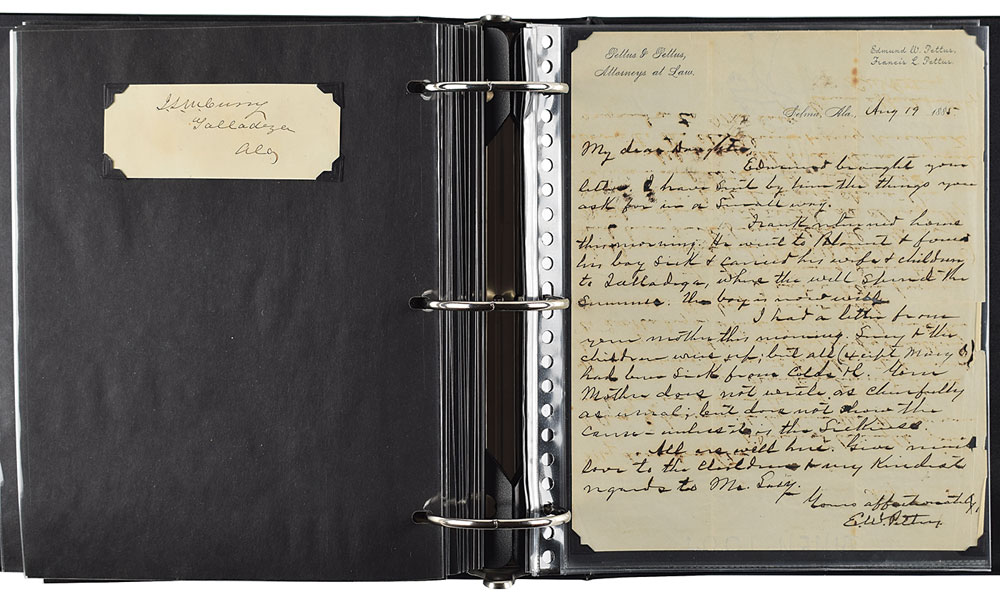 J L M Curry
Talladega
Ala
Pettus & Pettus,
Attorneys at Law.
Edmund W. Pettus,
Francis L. Pettus.
Selma, Ala., Aug 19 1885
My dear Daughter,
Edmund brought your
letter. I have sent by him the things you
ask for in a small way.
Frank returned home
this morning. He went to & found
his boy sick & carried his wife & children
to Talladega, where the will spend the
Summer. The boy is now well
I had a letter from
your mother this morning. & the
children were up; but all (except Mary
had been sick from Colds &c. Your
Mother does not write as cheerfully
as usual; but does not show the
cause – unless it is the Sickness
All are well here. Give much
love to the children & my Kindest
regards to Mr. Lacy.
Yours affectionately,
E. W. Pettus,